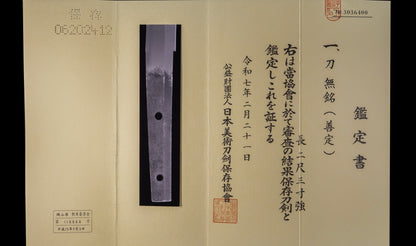 鑑定書
一、刀 無銘(善定)
長二尺三寸強
右は當協會に於て審査の結果保存刀剣と
鑑定しこれを証する
令和七年二月二十一日
公益財團法人日本美術刀剣保存協會
No 3036400
保存
06202412